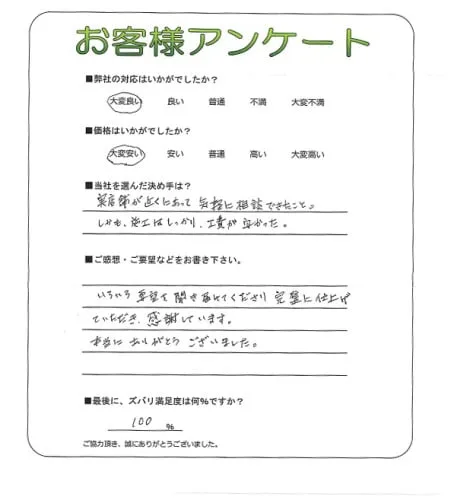 お客様アンケート
■弊社の対応はいかがでしたか?
大変良い 良い 普通 不満 大変不満
■価格はいかがでしたか?
大変安い 安い 普通 高い 大変高い
■当社を選んだ決め手は?
実店舗が近くにあって 気軽に相談できたこと。
しかも、施工はしっかり、工賃が良かった。
■ご感想・ご要望などをお書き下さい。
いろいろ 要望を 聞き届けてくださり 完璧に仕上げ
ていただき、感謝しています。
本当に ありがとう ございました。
■最後に、ズバリ満足度は何%ですか?
100 %
ご協力頂き、誠にありがとうございました。